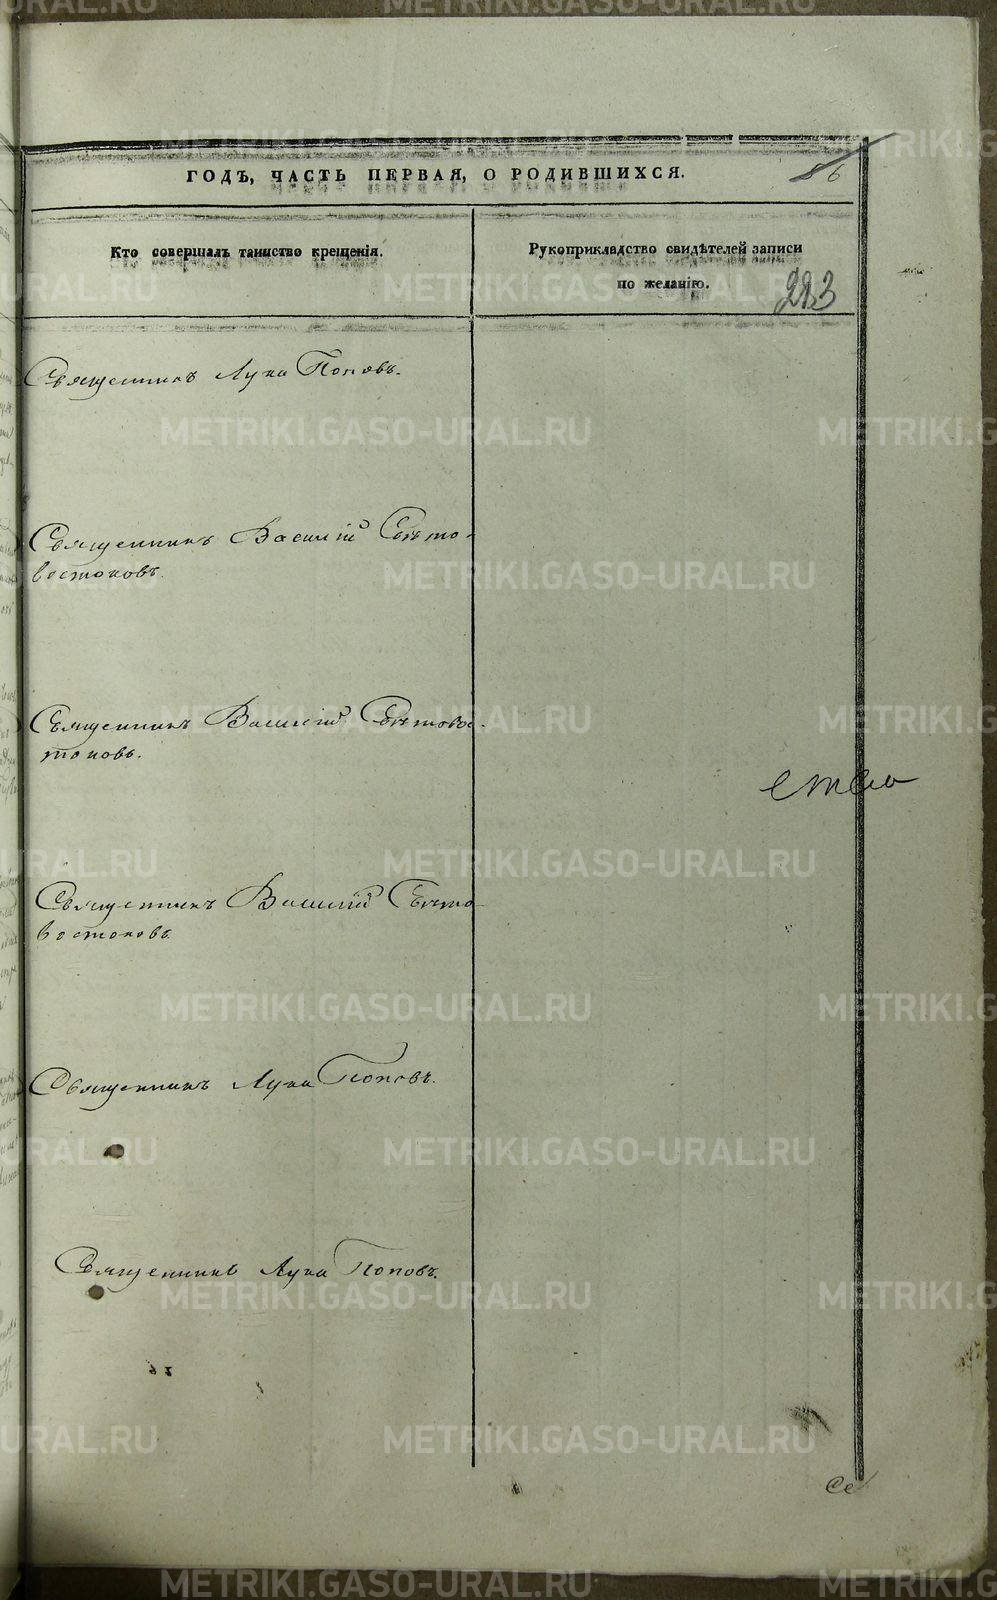 ГОДЪ, ЧАСТЬ ПЕРВАЯ, О РОДИВШИХСЯ.
Кто совершалъ таинство крещенія.
Рукоприкладство свидѣтелей записи
по желанію.
283
Священникъ Лука Поповъ.
Священникъ Василій Свѣто-
востоковъ.
Священникъ Василій Свѣтовос-
токовъ.
Священникъ Василій Свѣто-
востоковъ.
Священникъ Лука Поповъ.
Священникъ Лука Поповъ.
METRIKI.GASO-URAL.RU